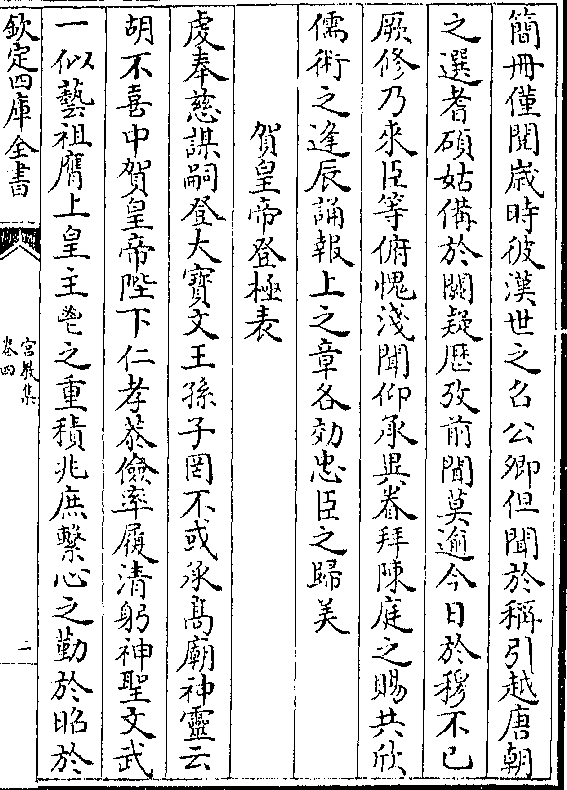 簡冊僅閱歲時彼漢世之召公卿但聞於稱引越唐朝
之選耆碩姑備於闕疑歷攷前聞莫逾今日於穆不已
厥修乃來臣等俯愧淺聞仰承異眷拜陳庭之賜共欣
儒術之逢辰誦報上之章各効忠臣之歸美
賀皇帝登極表
虔奉慈謀嗣登大寶文王孫子罔不或承髙廟神靈云
胡不喜中賀皇帝陛下仁孝恭儉率履清躬神聖文武
一似藝祖膺上皇主鬯之重積兆庶繫心之勤於昭於
欽定四庫全書
宮教集
卷四
二